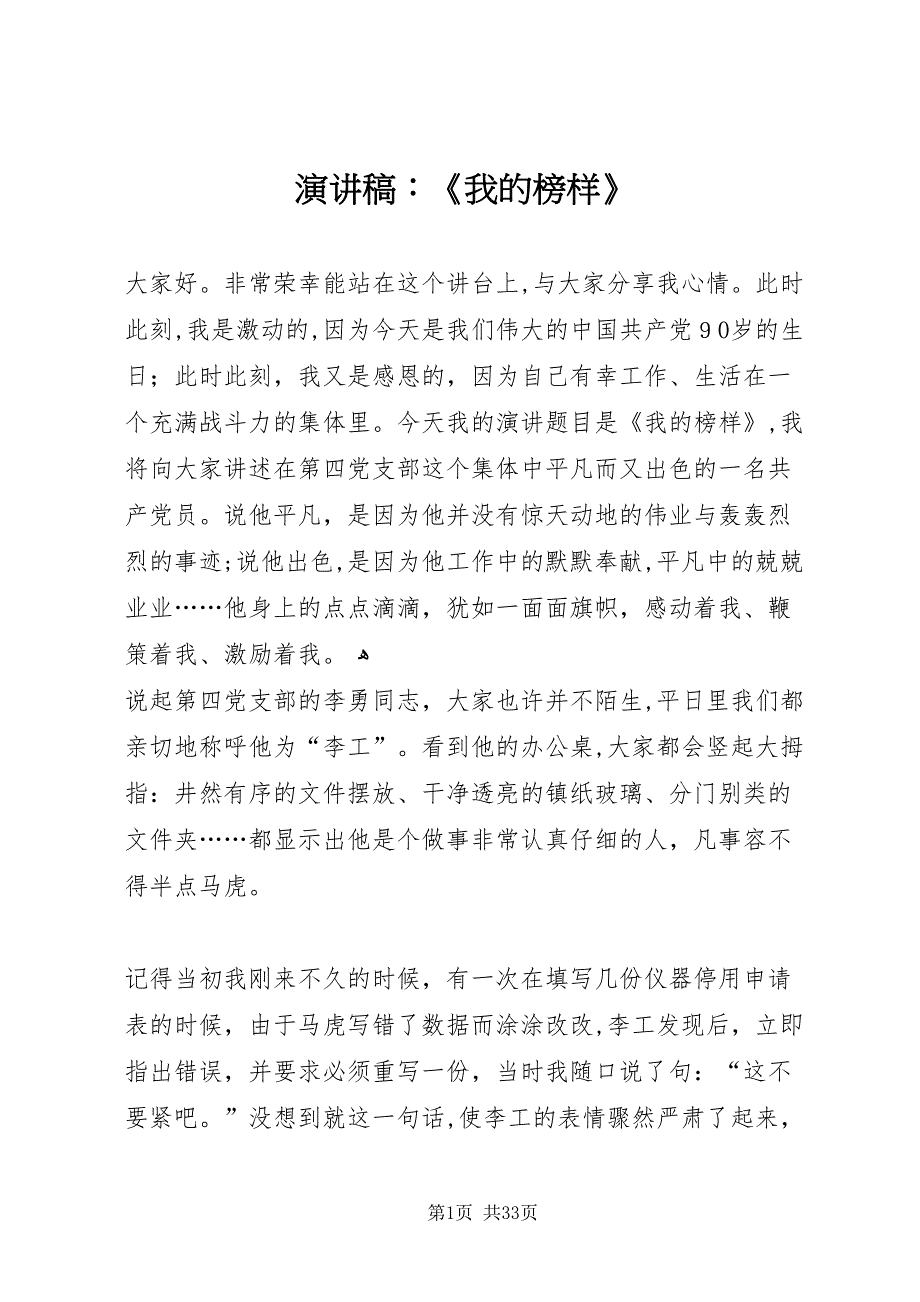 演讲稿：《我的榜样》
大家好。非常荣幸能站在这个讲台上,与大家分享我心情。此时
此刻,我是激动的,因为今天是我们伟大的中国共产党90岁的生
日；此时此刻，我又是感恩的，因为自己有幸工作、生活在一
个充满战斗力的集体里。今天我的演讲题目是《我的榜样》,我
将向大家讲述在第四党支部这个集体中平凡而又出色的一名共
产党员。说他平凡，是因为他并没有惊天动地的伟业与轰轰烈
烈的事迹;说他出色,是因为他工作中的默默奉献,平凡中的兢兢
业业……他身上的点点滴滴，犹如一面面旗帜，感动着我、鞭
策着我、激励着我。 ﻫ
说起第四党支部的李勇同志，大家也许并不陌生,平日里我们都
亲切地称呼他为“李工”。看到他的办公桌,大家都会竖起大拇
指：井然有序的文件摆放、干净透亮的镇纸玻璃、分门别类的
文件夹……都显示出他是个做事非常认真仔细的人，凡事容不
得半点马虎。
记得当初我刚来不久的时候，有一次在填写几份仪器停用申请
表的时候，由于马虎写错了数据而涂涂改改,李工发现后，立即
指出错误，并要求必须重写一份，当时我随口说了句：“这不
要紧吧。”没想到就这一句话,使李工的表情骤然严肃了起来，
第1页 共33页